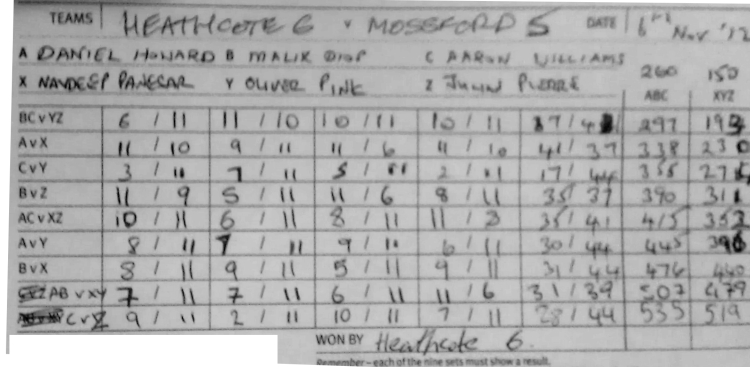 TEAMS HEATHCOTE 6 v MOSSFORD 5 DATE 6th Nov '12
A DANIEL HOWARD B MALIK DIOP C AARON WILLIAMS
X NAVDEEP PANESAR Y OLIVER PINK Z JULIAN PIERRE
260 150
ABC XYZ
BCvYZ 6 / 11 11 / 10 10 / 11 10 / 11 37 / 43 297 193
AvX 11 / 10 9 / 11 11 / 6 11 / 10 41 / 37 338 230
CvY 3 / 11 7 / 11 5 / 11 2 / 11 17 / 44 355 274
BvZ 11 / 9 5 / 11 11 / 6 8 / 11 35 / 37 390 311
ACvXZ 10 / 11 6 / 11 8 / 11 11 / 8 35 / 41 415 352
AvY 8 / 11 7 / 11 9 / 11 6 / 11 30 / 44 445 396
BvX 8 / 11 9 / 11 5 / 11 9 / 11 31 / 44 476 440
AB v XY 7 / 11 7 / 11 6 / 11 11 / 6 31 / 39 507 479
CvZ 9 / 11 2 / 11 10 / 11 7 / 11 28 / 44 535 519
WON BY Heathcote 6.
Remember – each of the nine sets must show a result.